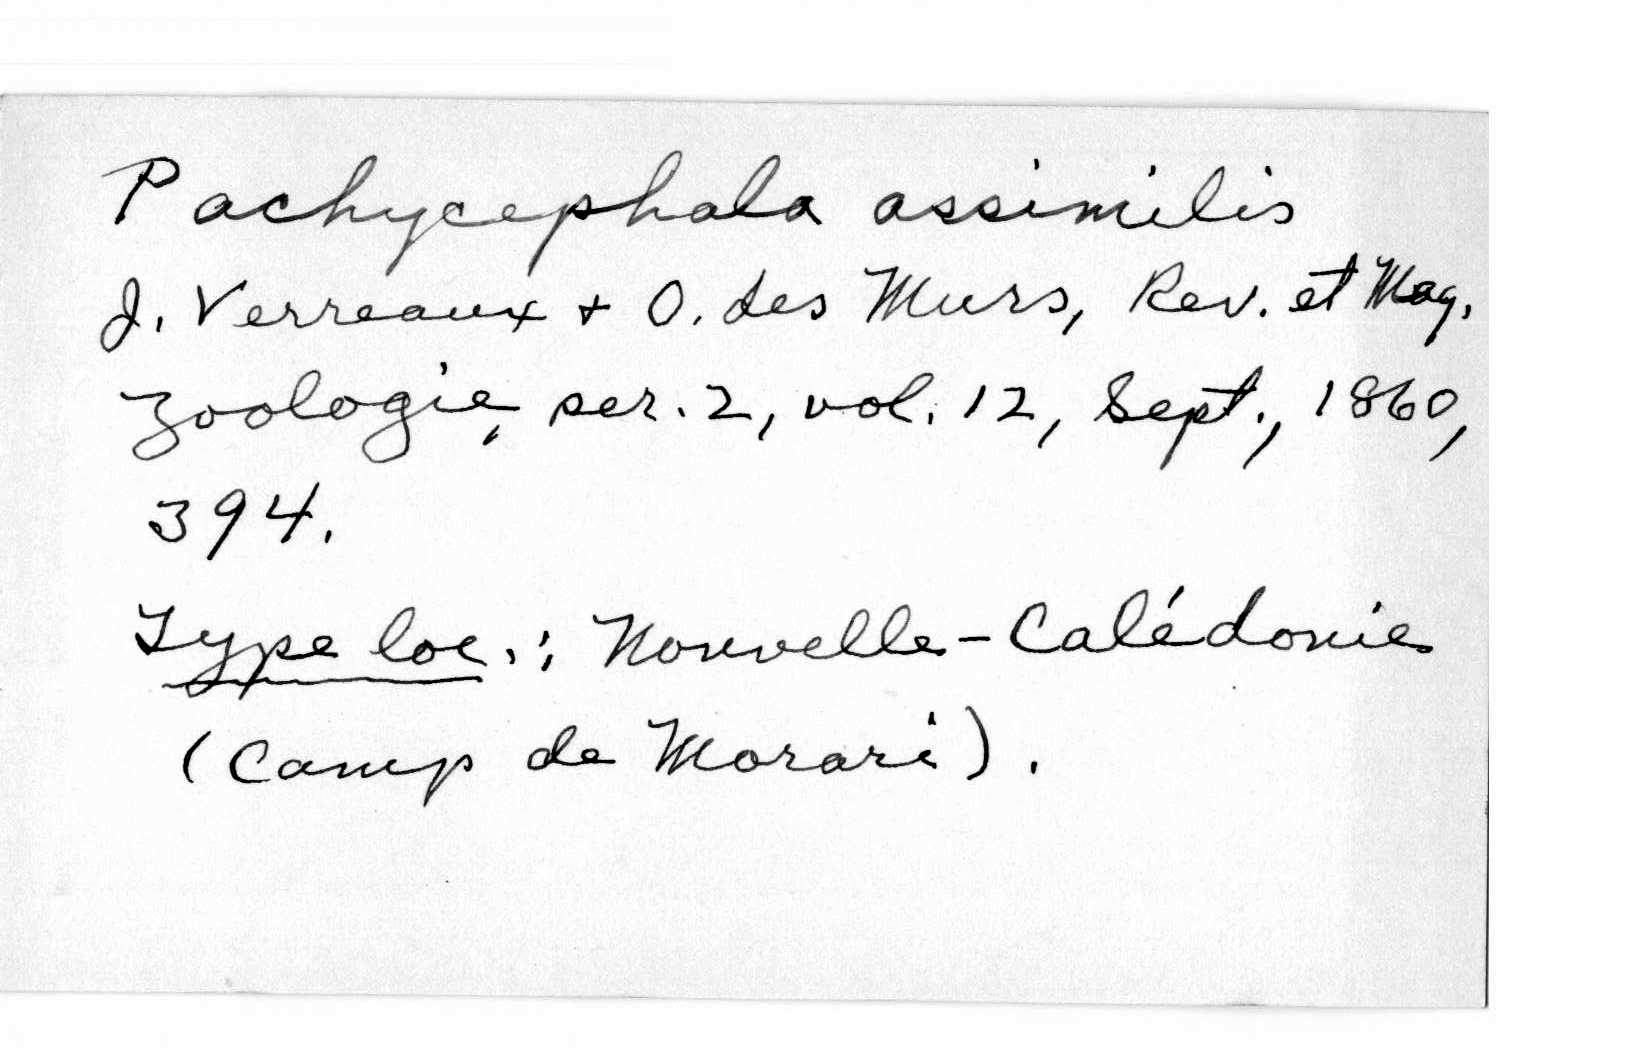 Pachycephala assimilis
J. Verreaux + O. des Murs, Rev. et Mag.
Zoologie, ser. 2, vol. 12, Sept., 1860,
394.
Type loc.: Nouvelle-Calédonie
(Camp de Morari).